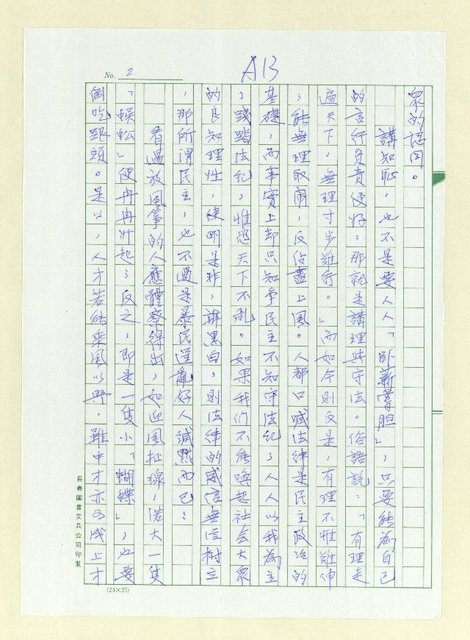 No. 2
A13
眾的認同。
講知恥,也不是要人人「臥薪嘗膽」,只要能為自己
的言行負責便好;那就是講理與守法。俗語說:「有理走
遍天下,無理寸步難行。」而如今則反是,有理不惟難伸
;能無理取鬧,反佔盡上風。人都口喊法律是民主政治的
基礎,而事實上卻只知爭民主不知守法紀;人人以我為主
;踐踏法紀,惟恐天下不亂。如果我們不能喚起社會大眾
的良知理性,使明是非,辨黑白,則法律的威信無從樹立
,那所謂民主,也不過是暴民逞亂好人緘默而已!
看過放風箏的人應體察得出,如迎風扯線,偌大一隻
「蜈蚣」便冉冉升起;反之,即是一隻小「蝴蝶」,也要
倒吃跟頭。是以,人才若能乘風以興,雖中才亦可成上才
(24×25)
長春圖書文具公司印製